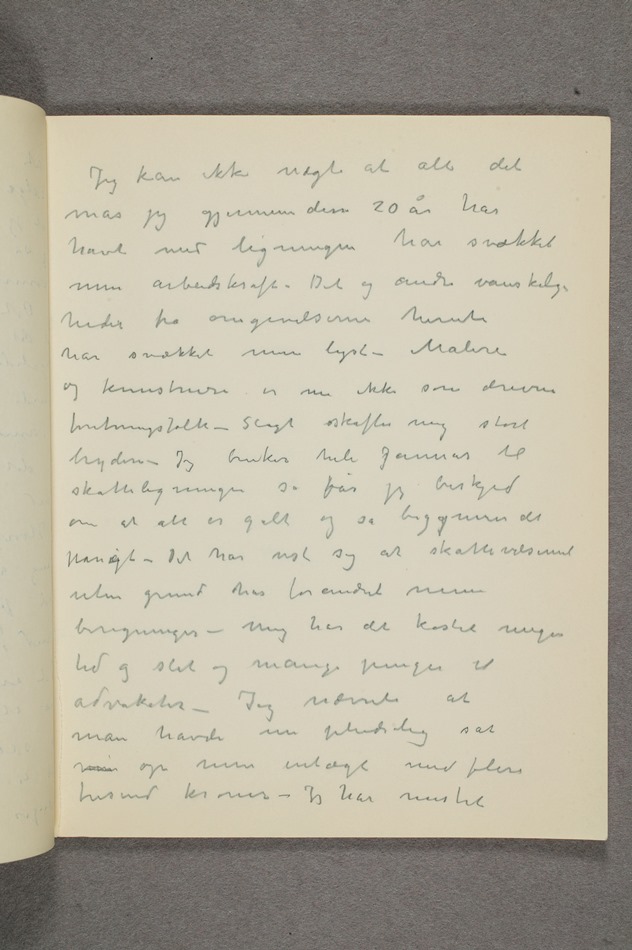 Jeg kan ikke nægte at alt det
mas jeg gjennem disse 20 år har
havt med ligningen har svækket
min arbeidskraft – Det og andre vanskelig-
heder fra omgivelserne herute
har svækket min lyst – Malere
og kunstnere er nu ikke som drevne
foretningsfolk – Sligt skaffer mig stort
bryderi – Jeg bruker hele Januar til
skatteligningen så får jeg beskjed
om at alt er galt og så begynner det
påný – Det har vist sig at skattevæsenet
uten grund har forandret mine
beregninger – Mig har det kostet meget
tid og slit og mange penger til
advokater – Jeg nævnte at
man havde nu pludselig sat
min op min indtægt med flere
tusend kroner – Jeg har mistet